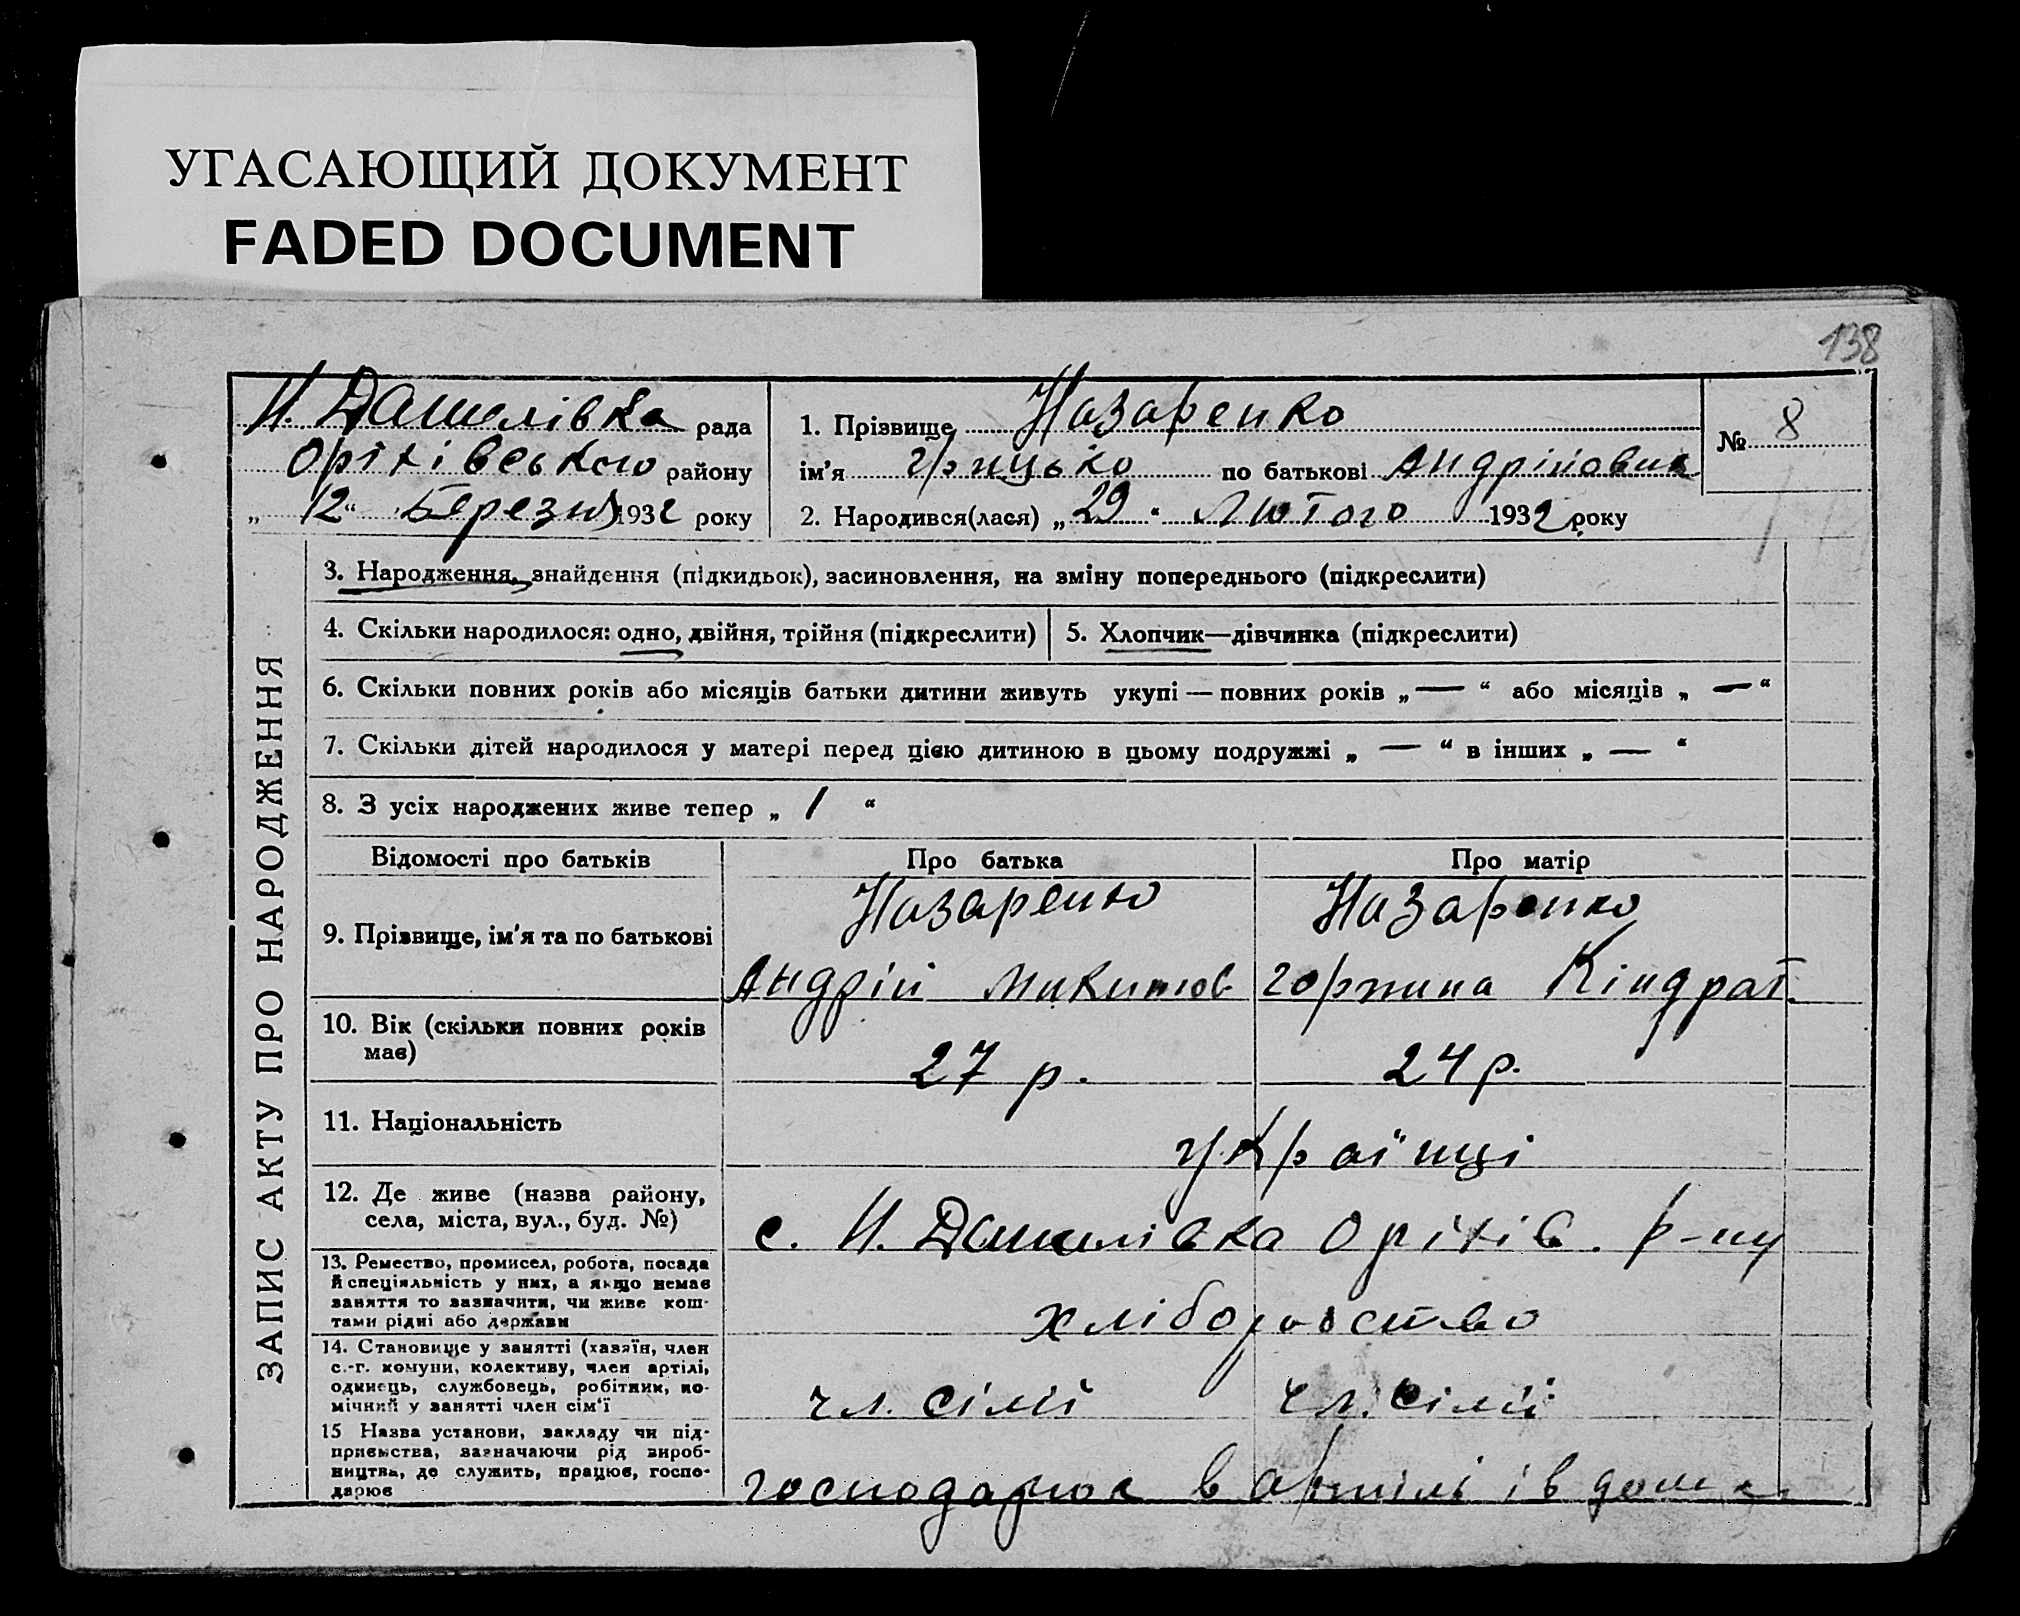 УГАСАЮЩИЙ ДОКУМЕНТ
FADED DOCUMENT
138
Н. Данилівка рада
Оріхівського району
„ 12 “ Березня 1932 року
1. Прізвище Назаренко
ім’я Грицько по батькові Андрійович
2. Народився(лася) „ 29 “ Лютого 1932 року
№ 8
ЗАПИС АКТУ ПРО НАРОДЖЕННЯ
3. Народження, знайдення (підкидьок), засиновлення, на зміну попереднього (підкреслити)
4. Скільки народилося: одно, двійня, трійня (підкреслити)
5. Хлопчик—дівчинка (підкреслити)
6. Скільки повних років або місяців батьки дитини живуть укупі — повних років „ — “ або місяців „ — “
7. Скільки дітей народилося у матері перед цією дитиною в цьому подружжі „ — “ в інших „ — “
8. З усіх народжених живе тепер „ 1 “
Відомості про батьків
Про батька
Про матір
9. Прізвище, ім’я та по батькові
Назаренко
Андрій Микитов
Назаренко
Горпина Кіндрат.
10. Вік (скільки повних років
має)
27 р.
24 р.
11. Національність
українці
12. Де живе (назва району,
села, міста, вул., буд. №)
с. Н. Данилівка Оріхів. р-ну
13. Ремество, промисел, робота, посада
й спеціяльність у них, а якщо немає
заняття то зазначити, чи живе кош-
тами рідні або держави
хліборобство
14. Становище у занятті (хазяїн, член
с.-г. комуни, колективу, член артілі,
одинець, службовець, робітник, по-
мічний у занятті член сім’ї
чл. сімії
чл. сімії
15 Назва установи, закладу чи під-
приємства, зазначаючи рід вироб-
ництва, де служить, працює, госпо-
дарює
господарює в артілі і в дома